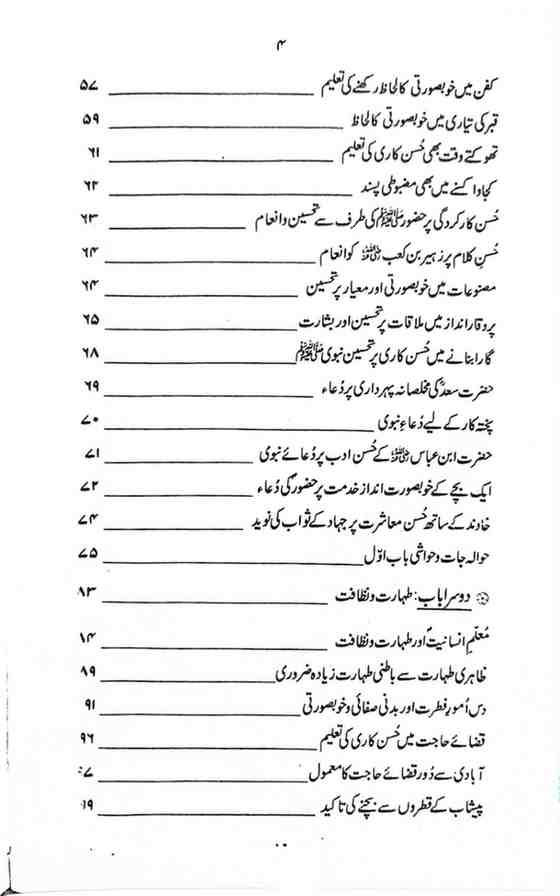 ۴
کفن میں خوبصورتی کا لحاظ رکھنے کی تعلیم ۵۷
قبر کی تیاری میں خوبصورتی کا لحاظ ۵۹
تھوکتے وقت بھی حُسن کاری کی تعلیم ۶۱
کجاوا کسنے میں بھی مضبوطی پسند ۶۲
حُسن کارکردگی پر حضور ﷺ کی طرف سے تحسین و انعام ۶۳
حُسنِ کلام پر زہیر بن کعب ﷺ کو انعام ۶۴
مصنوعات میں خوبصورتی اور معیار پر تحسین ۶۴
پروقار انداز میں ملاقات پر تحسین اور بشارت ۶۵
گارا بنانے میں حُسن کاری پر تحسین نبوی ﷺ ۶۸
حضرت سعدؓ کی مخلصانہ پہرداری پر دُعاء ۶۹
پختہ کار کے لیے دُعاءِ نبوی ۷۰
حضرت ابن عباس ﷺ کے حُسن ادب پر دُعائے نبوی ۷۱
ایک بچے کے خوبصورت انداز خدمت پر حضورؐ کی دُعاء ۷۲
خاوند کے ساتھ حُسن معاشرت پر جہاد کے ثواب کی نوید ۷۴
حوالہ جات و حواشی باب اوّل ۷۵
دوسرا باب: طہارت و نظافت ۸۳
مُعلّمِ انسانیتؐ اور طہارت و نظافت ۸۴
ظاہری طہارت سے باطنی طہارت زیادہ ضروری ۸۹
دس اُمورِ فطرت اور بدنی صفائی و خوبصورتی ۹۱
قضائے حاجت میں حُسن کاری کی تعلیم ۹۶
آبادی سے دُور قضائے حاجت کا معمول ۷
پیشاب کے قطروں سے بچنے کی تاکید ۱۹